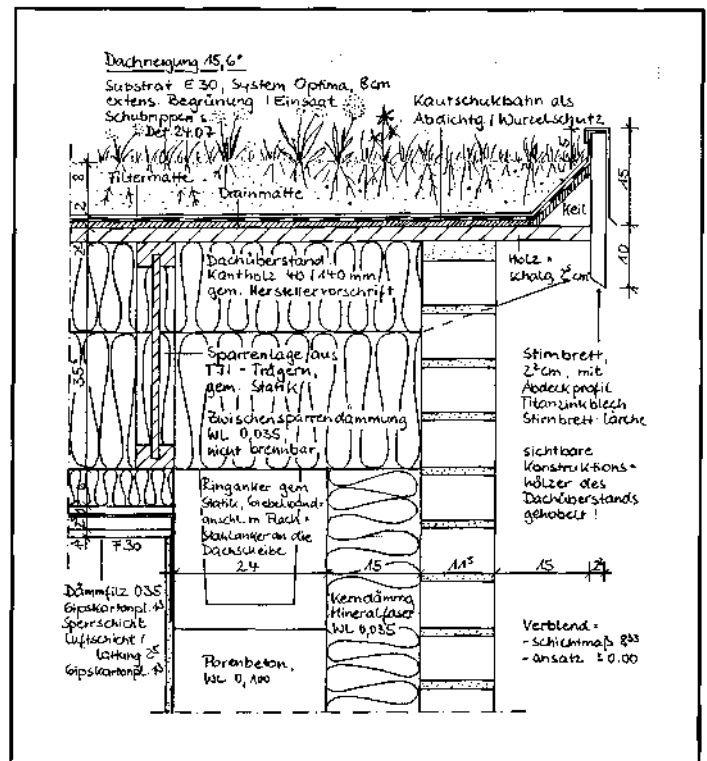 Dachneigung 15,6°
Substrat E 30, System Optima, 8cm
extens. Begrünung / Einsaat
Schubrippen s.
Det 24.07
Kautschukbahn als
Abdichtg / Wurzelschutz
Filtermatte
Drainmatte
Keil
15
10
8
2
Dachüberstand
Kantholz 40/140 mm
gem. Herstellervorschrift
Holz=
schalg 2⁵ cm
Sparrenlage aus
TJI-Trägern,
gem. Statik
Zwischensparrendämmung
WL 0,035,
nicht brennbar
35⁶
Stirnbrett,
2² cm, mit
Abdeckprofil
Titanzinkblech
Stirnbrett Lärche
sichtbare
Konstruktions=
hölzer des
Dachüberstands
gehobelt !
Ringanker gem
Statik, Giebelwand-
anschl. m Flach=
stahlanker an die
Dachscheibe
F30
24
15
11⁵
15
2²
Dämmfilz 035
Gipskartonpl. 1³
Sperrschicht
Luftschicht /
lattung 2⁵
Gipskartonpl. 1³
Kerndämmg
Mineralfaser
WL 0,035
Porenbeton,
WL 0,100
Verblend=
-schichtmaß 8³³
-ansatz ± 0.00